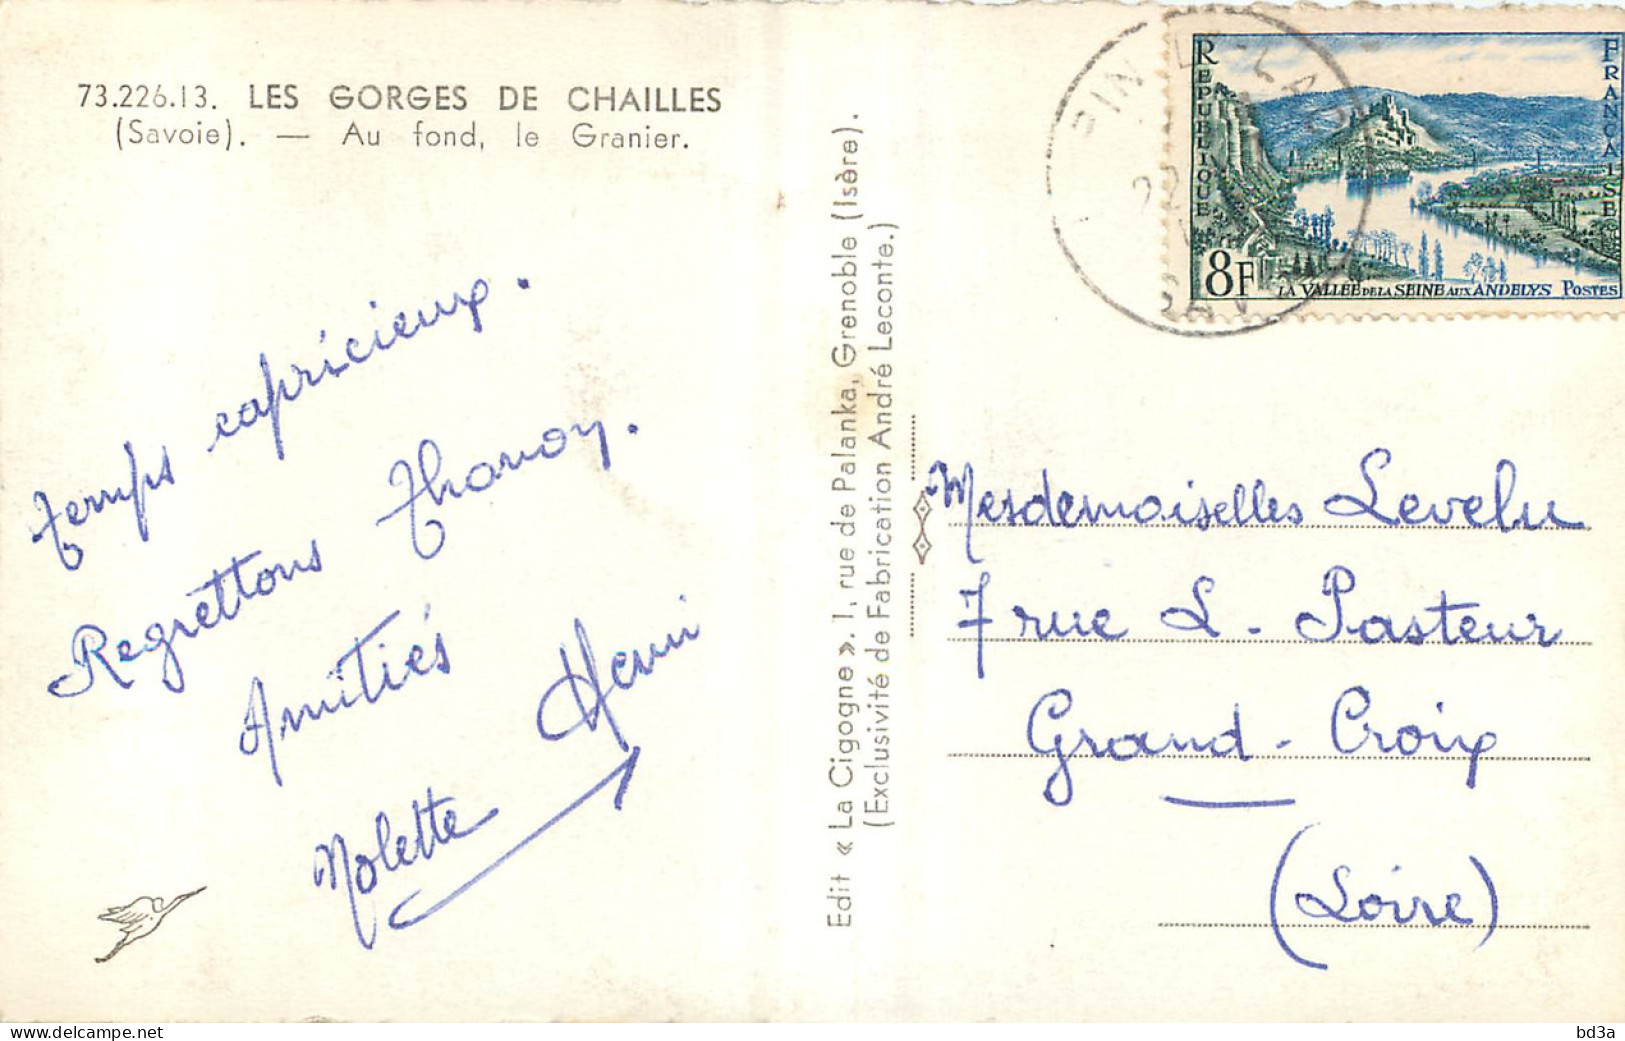 73.226.13. LES GORGES DE CHAILLES
(Savoie). — Au fond, le Granier.
temps capricieux.
Regrettons Thonon.
Amitiés
Henri
Nolette
Edit « La Cigogne ». 1, rue de Palanka, Grenoble (Isère).
(Exclusivité de Fabrication André Leconte.)
22
SAV
REPUBLIQUE
FRANÇAISE
8F
LA VALLÉE DE LA SEINE AUX ANDELYS POSTES
Mesdemoiselles Levelu
7 rue L. Pasteur
Grand-Croix
(Loire)
bd3a